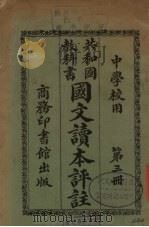 中學校用
共和國
教科書
國文讀本評註
第三冊
商務印書館出版